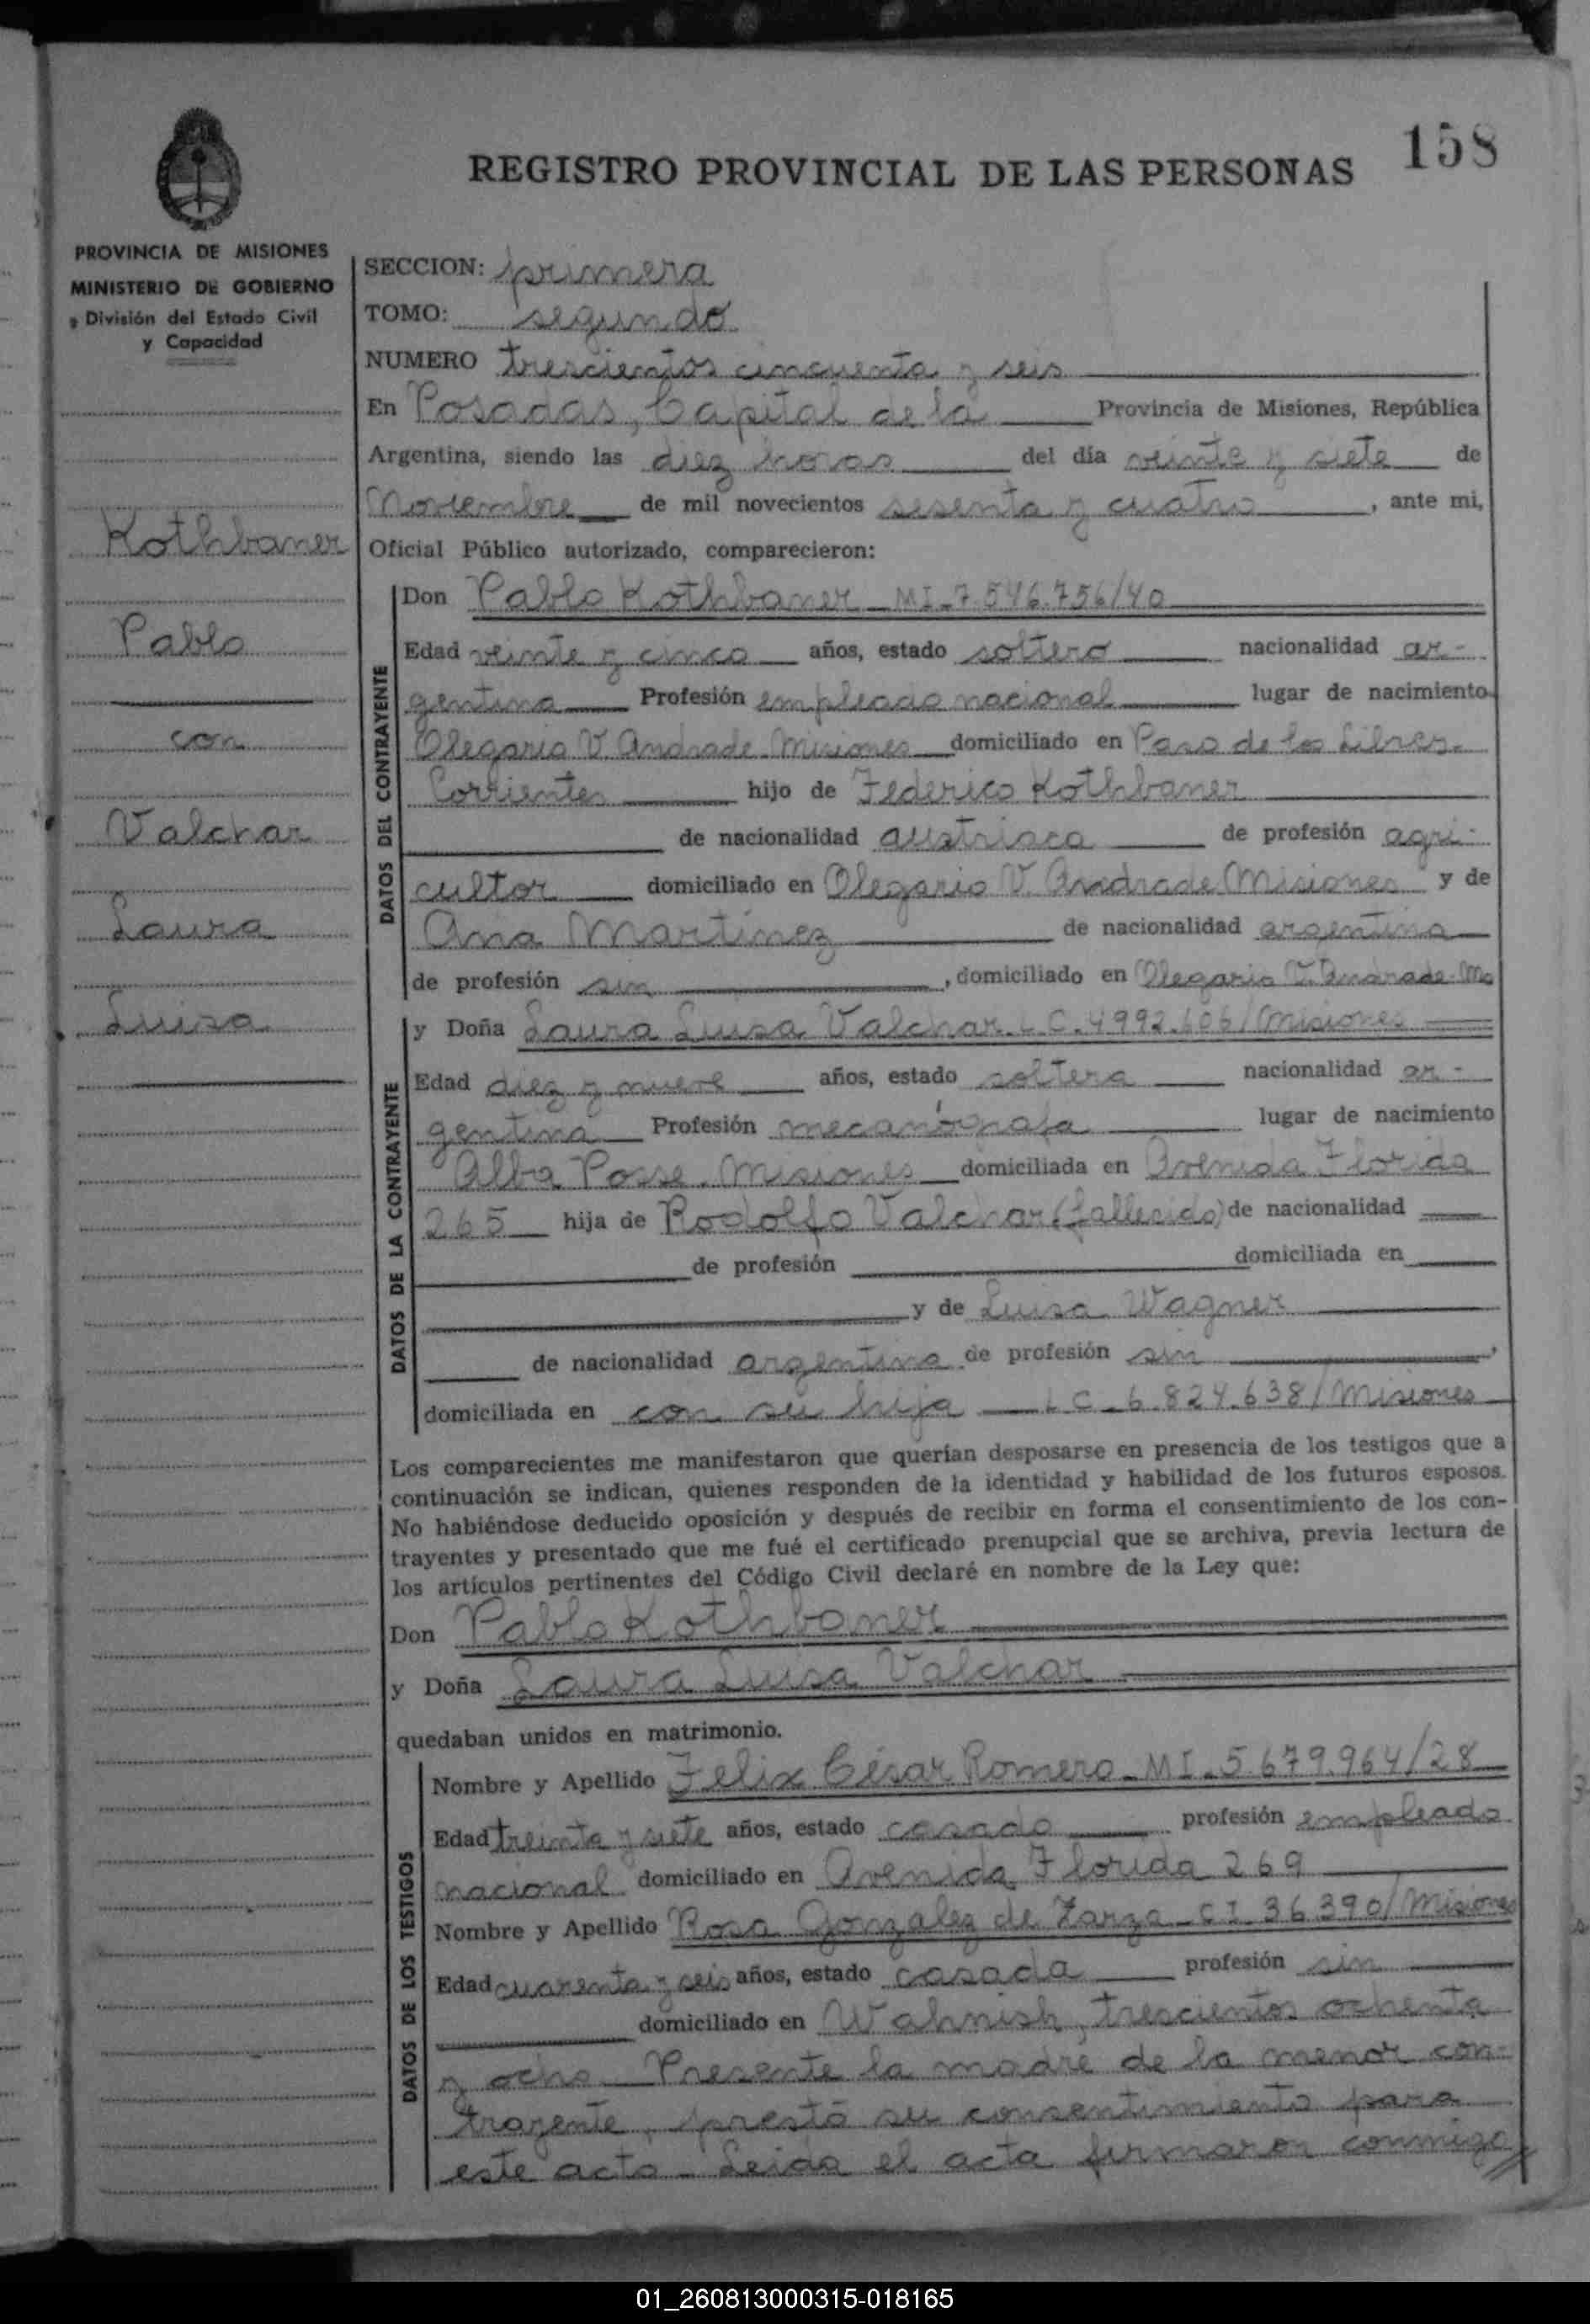 158
REGISTRO PROVINCIAL DE LAS PERSONAS
PROVINCIA DE MISIONES
MINISTERIO DE GOBIERNO
División del Estado Civil
y Capacidad
Kothbaner
Pablo
con
Valchar
Laura
Luisa
SECCION: primera
TOMO: segundo
NUMERO trescientos cincuenta y seis
En Posadas, Capital de la Provincia de Misiones, República
Argentina, siendo las diez horas del día veinte y siete de
Noviembre de mil novecientos sesenta y cuatro, ante mi,
Oficial Público autorizado, comparecieron:
DATOS DEL CONTRAYENTE
Don Pablo Kothbaner - MI-7.546.756/40
Edad veinte y cinco años, estado soltero nacionalidad ar-
gentina Profesión empleado nacional lugar de nacimiento
Olegario V. Andrade - Misiones domiciliado en Paso de los Libres -
Corrientes hijo de Federico Kothbaner
de nacionalidad austriaca de profesión agri-
cultor domiciliado en Olegario V. Andrade Misiones y de
Ana Martinez de nacionalidad argentina
de profesión sin, domiciliado en Olegario V. Andrade - Ms
DATOS DE LA CONTRAYENTE
y Doña Laura Luisa Valchar - L C. 4992.606/Misiones
Edad diez y nueve años, estado soltera nacionalidad ar-
gentina Profesión mecanógrafa lugar de nacimiento
Alba Posse - Misiones domiciliada en Avenida Florida
265 hija de Rodolfo Valchar (fallecido) de nacionalidad
de profesión domiciliada en
y de Luisa Wagner
de nacionalidad argentina de profesión sin,
domiciliada en con su hija - L C - 6.824.638/Misiones
Los comparecientes me manifestaron que querían desposarse en presencia de los testigos que a
continuación se indican, quienes responden de la identidad y habilidad de los futuros esposos.
No habiéndose deducido oposición y después de recibir en forma el consentimiento de los con-
trayentes y presentado que me fué el certificado prenupcial que se archiva, previa lectura de
los artículos pertinentes del Código Civil declaré en nombre de la Ley que:
Don Pablo Kothbaner
y Doña Laura Luisa Valchar
quedaban unidos en matrimonio.
DATOS DE LOS TESTIGOS
Nombre y Apellido Felix César Romero - MI - 5.679.964/28
Edad treinta y siete años, estado casado profesión empleado
nacional domiciliado en Avenida Florida 269
Nombre y Apellido Rosa Gonzalez de Zarza - C I 36.390/Misiones
Edad cuarenta y seis años, estado casada profesión sin
domiciliado en Wahnish, trescientos ochenta
y ocho - Presente la madre de la menor con-
trayente, prestó su consentimiento para
este acto - Leida el acta firmaron conmigo//
01_260813000315-018165